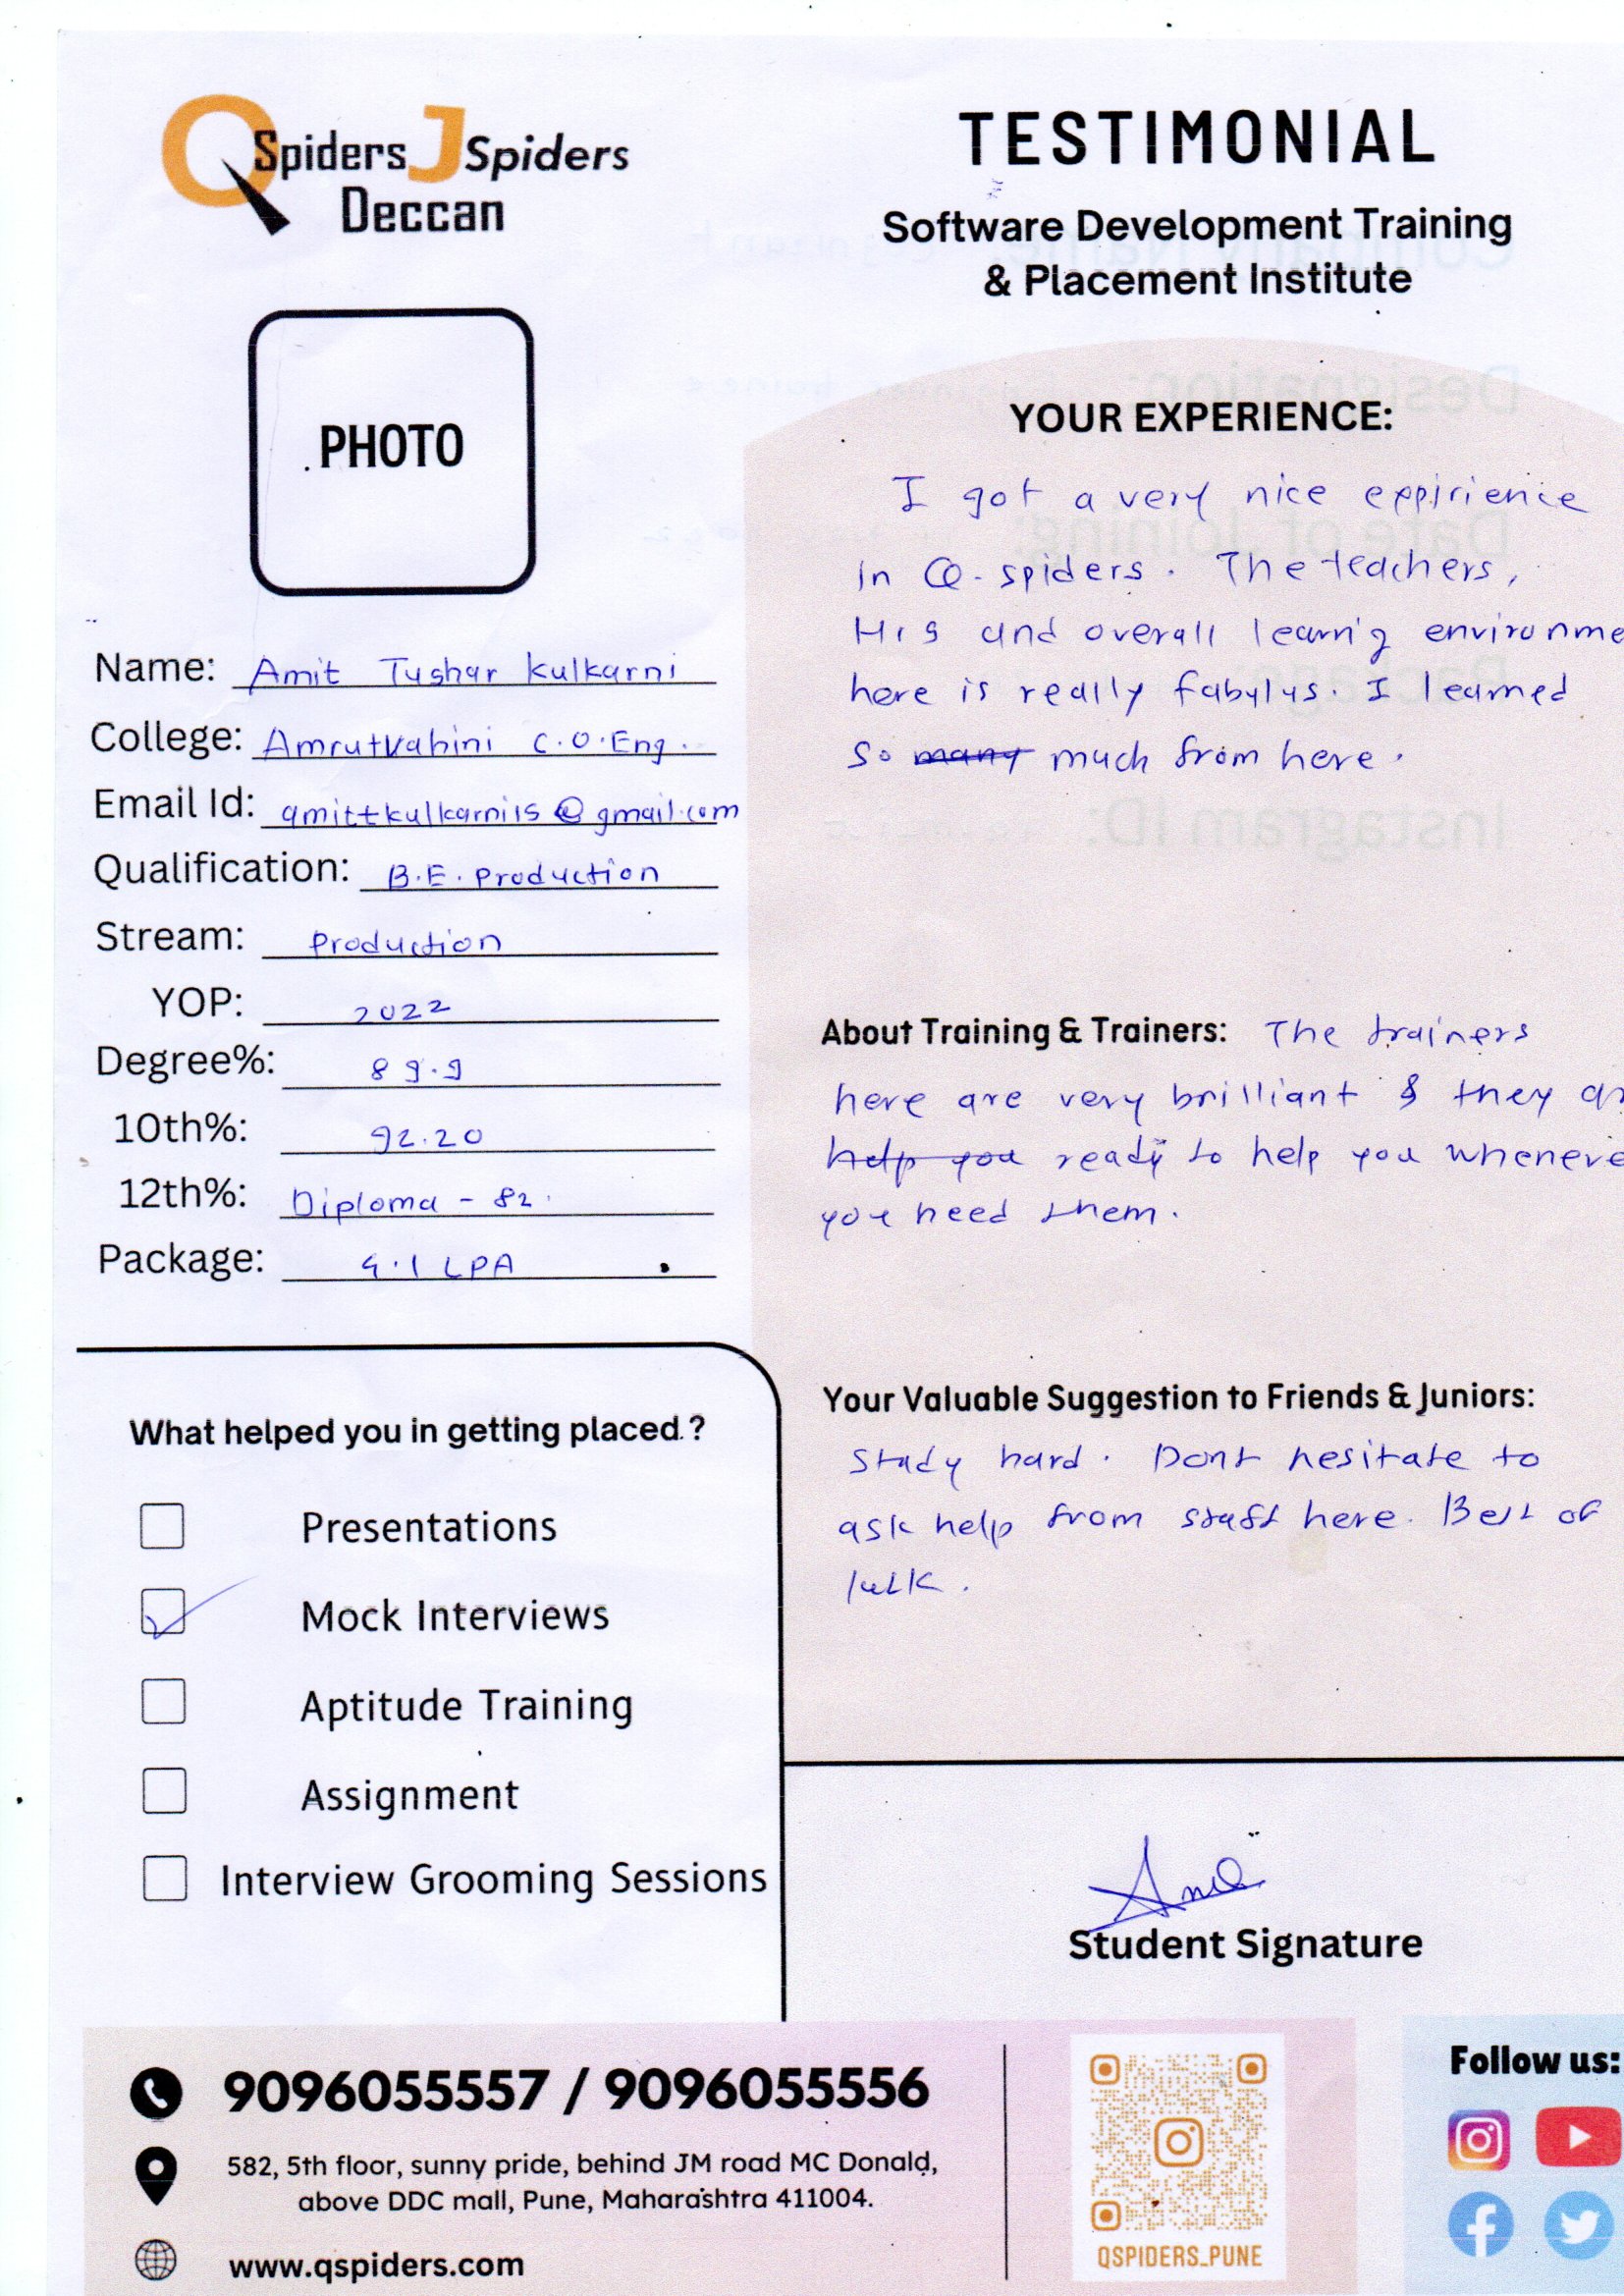 QSpiders JSpiders
Deccan
TESTIMONIAL
Software Development Training
& Placement Institute
PHOTO
Name: Amit Tushar Kulkarni
College: Amrutvahini C.O.Eng.
Email Id: amittkulkarni15@gmail.com
Qualification: B.E. Production
Stream: Production
YOP: 2022
Degree%: 89.9
10th%: 92.20
12th%: Diploma - 82.
Package: 4.1 LPA
YOUR EXPERIENCE:
I got a very nice expirience
in Q-spiders. The teachers,
Hrs and overall learnig environme
here is really fabulus. I learned
so many much from here.
About Training & Trainers: The trainers
here are very brilliant & they ar
help you ready to help you wheneve
you need them.
Your Valuable Suggestion to Friends & Juniors:
Study hard. Dont hesitate to
ask help from staff here. Best of
luck.
What helped you in getting placed.?
Presentations
Mock Interviews
Aptitude Training
Assignment
Interview Grooming Sessions
Student Signature
9096055557 / 9096055556
582, 5th floor, sunny pride, behind JM road MC Donald,
above DDC mall, Pune, Maharashtra 411004.
www.qspiders.com
QSPIDERS_PUNE
Follow us: